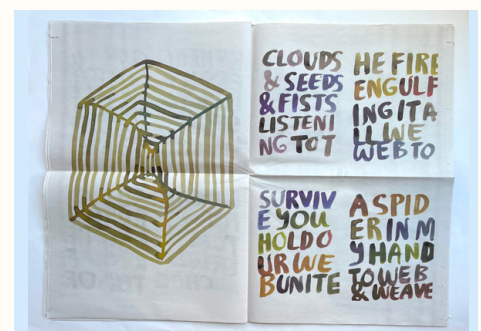 CLOUDS
& SEEDS
& FISTS
LISTENI
NG TO T
HE FIRE
ENGULF
ING IT A
LL WE
WEB TO
SURVIV
E YOU
HOLD O
UR WE
B UNITE
A SPID
ER IN M
Y HAND
TO WEB
& WEAVE